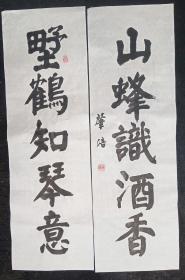 山蜂識酒香
野鶴知琴意